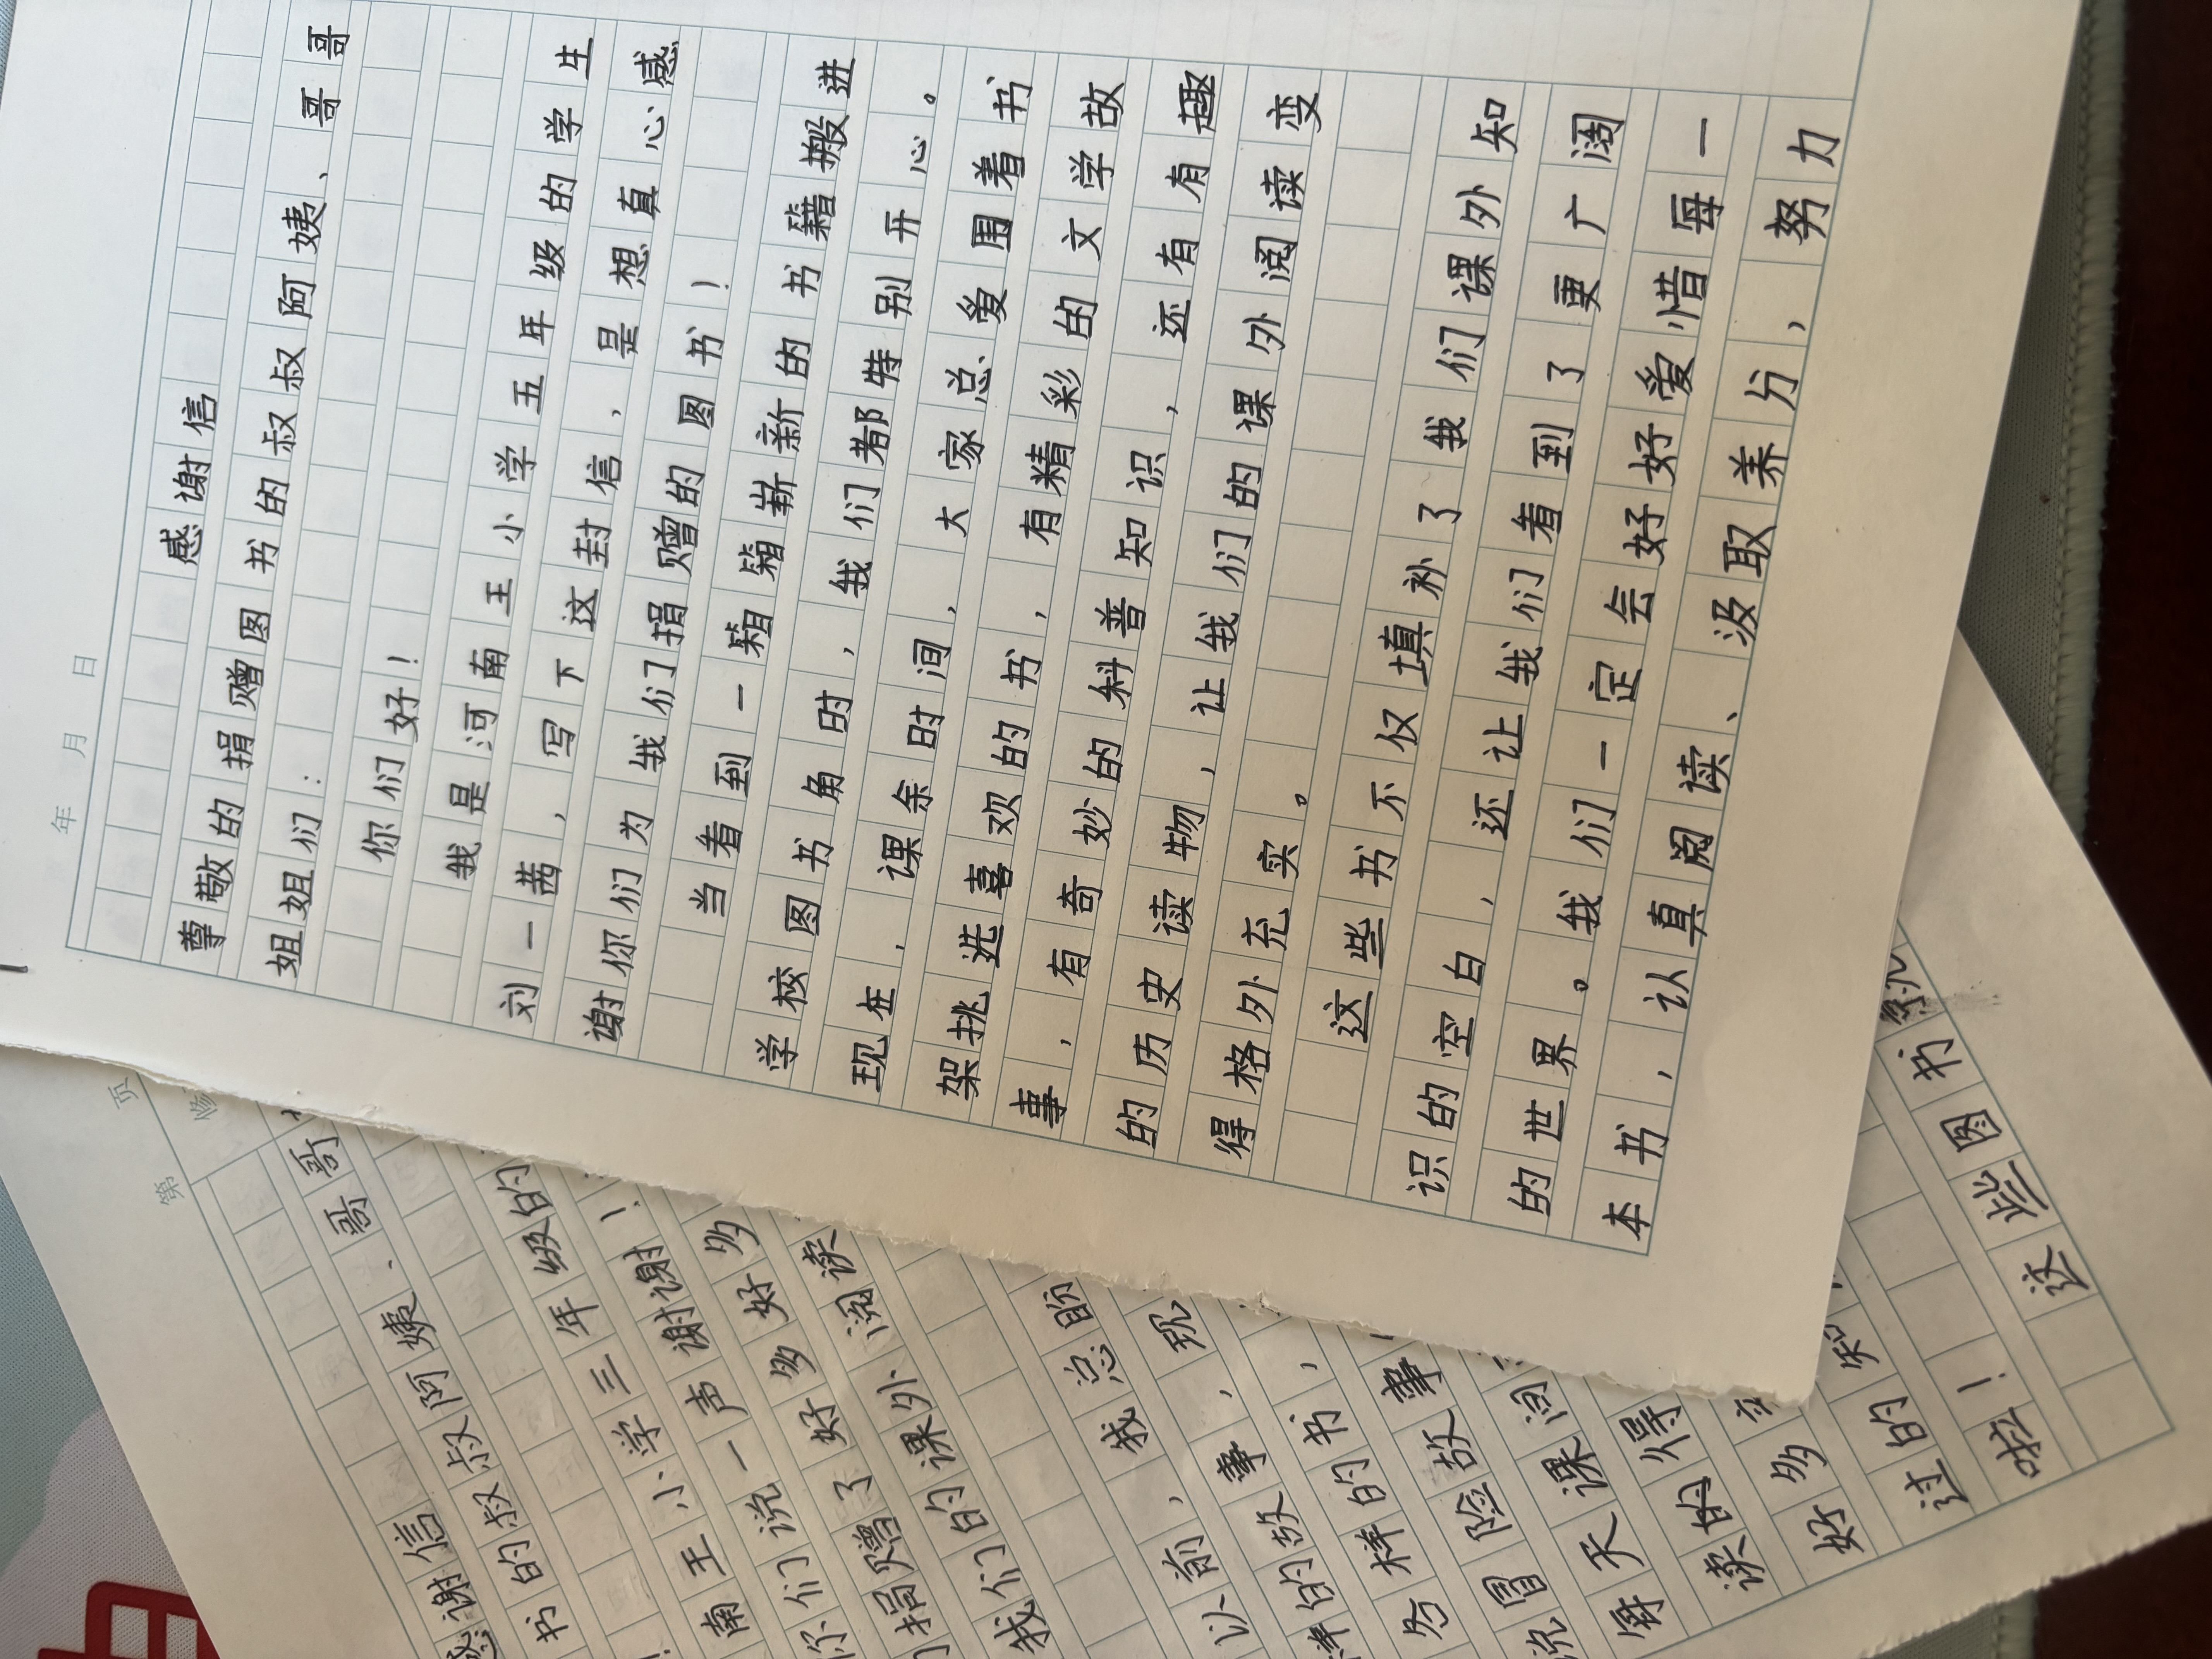 年 月 日
感谢信
尊敬的捐赠图书的叔叔阿姨、哥哥
姐姐们:
你们好!
我是河南王小学五年级的学生
刘一茜,写下这封信,是想真心感
谢你们为我们捐赠的图书!
当看到一箱箱崭新的书籍搬进
学校图书角时,我们都特别开心。
现在,课余时间,大家总爱围着书
架挑选喜欢的书,有精彩的文学故
事,有奇妙的科普知识,还有有趣
的历史读物,让我们的课外阅读变
得格外充实。
这些书不仅填补了我们课外知
识的空白,还让我们看到了更广阔
的世界。我们一定会好好爱惜每一
本书,认真阅读、汲取养分,努力
第 页
感谢信
书的叔叔阿姨、哥哥
南王小学三年级的
你们说一声谢谢!
们捐赠了好多好多
我们的课外阅读
我总盼
以前,
样的故事,现
各样的书,
说冒险故事
每天课
读的
得
好多
过的知
啦!
这些图书